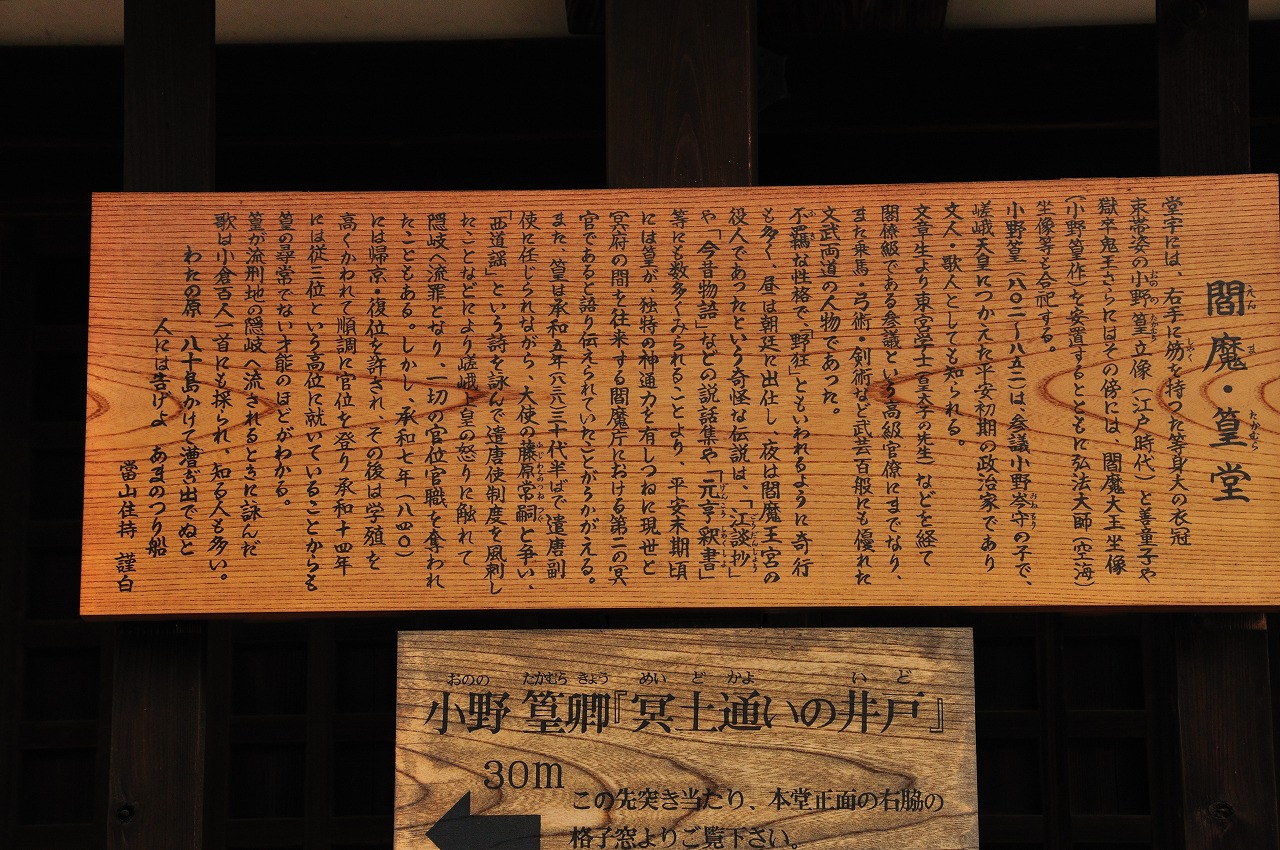 閻魔・篁堂
えん ま たかむら
堂宇には、右手に笏を持つた等身大の衣冠
しゃく
束帯姿の小野篁立像(江戸時代)と善童子や
おのの たかむら
獄卒鬼王さらにはその傍には、閻魔大王坐像
(小野篁作)を安置するとともに弘法大師(空海)
坐像等も合祀する。
小野篁(八〇二〜八五二)は、参議小野岑守の子で、
おのみねもり
嵯峨天皇につかえた平安初期の政治家であり
文人・歌人としても知られる。
文章生より東宮学士(皇太子の先生)などを経て
閣僚級である参議という高級官僚にまでなり、
また乗馬・弓術・剣術など武芸百般にも優れた
文武両道の人物であった。
不羈な性格で、「野狂」ともいわれるように奇行
ふき
も多く、昼は朝廷に出仕し、夜は閻魔王宮の
役人であったという奇怪な伝説は、「江談抄」
ごうだんしょう
や「今昔物語」などの説話集や「元亨釈書」
げんこうしゃくしょ
等にも数多くみられることより、平安末期頃
には篁が、独特の神通力を有しつねに現世と
冥府の間を往来する閻魔庁における第二の冥
官であると語り伝えられていたことがうかがえる。
また、篁は承和五年(八三八)三十代半ばで遣唐副
使に任じられながら、大使の藤原常嗣と争い、
ふじわらのつねつぐ
「西道謡」という詩を詠んで遣唐使制度を風刺し
たことなどにより嵯峨上皇の怒りに触れて
隠岐へ流罪となり、一切の官位官職を奪われ
たこともある。しかし、承和七年(八四〇)
には帰京・復位を許され、その後は学殖を
高くかわれて順調に官位を登り承和十四年
には従三位という高位に就いていることからも
篁の尋常でない才能のほどがわかる。
篁が流刑地の隠岐へ流されるときに詠んだ
歌は小倉百人一首にも採られ、知る人も多い。
わたの原 八十島かけて漕ぎ出でぬと
人には告げよ あまのつり船
當山住持 謹白
おのの たかむら きょう めい ど かよ い ど
小野 篁卿『冥土通いの井戸』
30m
この先突き当たり、本堂正面の右脇の
格子窓よりご覧下さい。